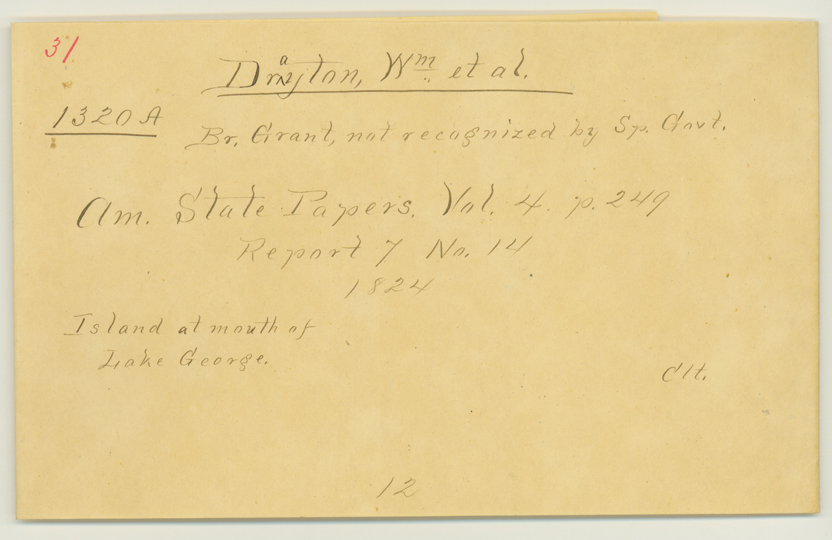 31
Drayton, Wm et al.
1320 A
Br. Grant, not recognized by Sp. Govt.
Am. State Papers. Vol. 4. p. 249
Report 7 No. 14
1824
Island at mouth of
Lake George.
Clt.
12